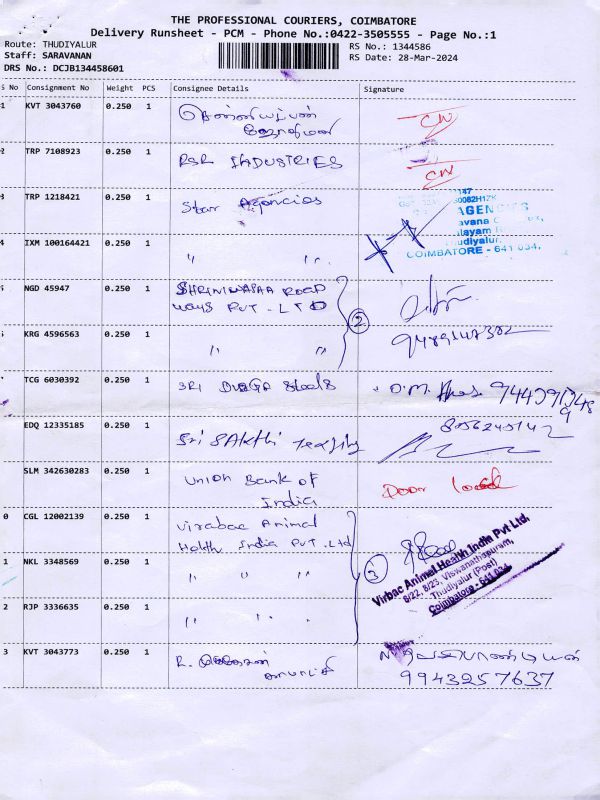 THE PROFESSIONAL COURIERS, COIMBATORE
Delivery Runsheet - PCM - Phone No.:0422-3505555 - Page No.:1
Route: THUDIYALUR
RS No.: 1344586
Staff: SARAVANAN
RS Date: 28-Mar-2024
DRS No.: DCJB134458601
S No Consignment No Weight PCS Consignee Details Signature
1 KVT 3043760 0.250 1
CN
2 TRP 7108923 0.250 1 RSR INDUSTRIES
CN
3 TRP 1218421 0.250 1 Star Agencies
AGENCIES
4 IXM 100164421 0.250 1 " "
Thudiyalur,
COIMBATORE - 641 034.
NGD 45947 0.250 1 SHRINIVASAA ROAD
WAYS PVT. LTD
2
KRG 4596563 0.250 1 " "
TCG 6030392 0.250 1 SRI DURGA Steels
EDQ 12335185 0.250 1 Sri SAkthi
SLM 342630283 0.250 1 Union Bank of
India
Door locked
0 CGL 12002139 0.250 1 Virabac Animal
Helth India Pvt. Ltd
Virbac Animal Health India Pvt Ltd,
8/22, 8/23, Viswanathapuram,
Thudiyalur (Post)
Coimbatore - 641 034
3
1 NKL 3348569 0.250 1 " " "
2 RJP 3336635 0.250 1 "
3 KVT 3043773 0.250 1 R.
9943257637